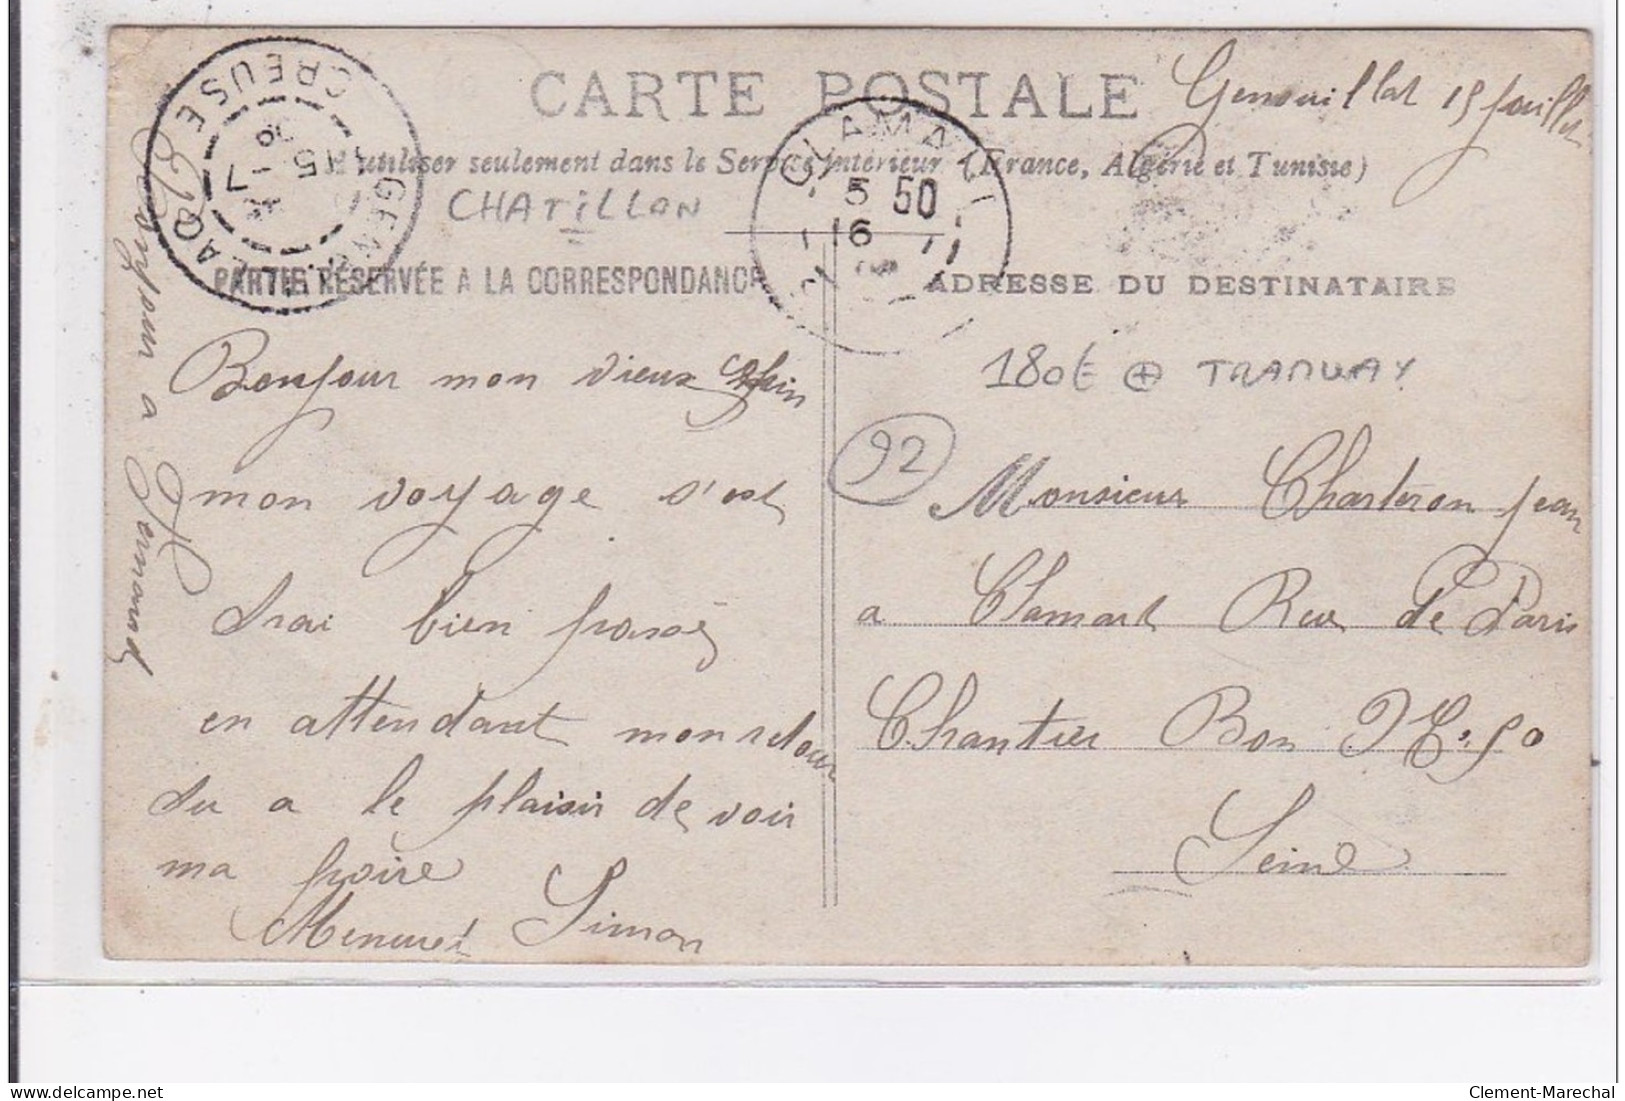 CARTE POSTALE
Genouillat 15 Juillet
A utiliser seulement dans le Service intérieur (France, Algérie et Tunisie)
CREUSE
15 -7
CLAMART
5 50
16
CHATILLON
PARTIE RÉSERVÉE A LA CORRESPONDANCE
ADRESSE DU DESTINATAIRE
Bonjour a Fernand
Bonjour mon vieux
mon voyage s'est
trai bien passé
en attendant mon retour
du a le plaisir de voir
ma poire
Simon
180€ + TRAMWAY
92
Monsieur Charteron Jean
a Clamart Rue De Paris
Chantier Bon
Seine
delcampe.net
Clement-Marechal